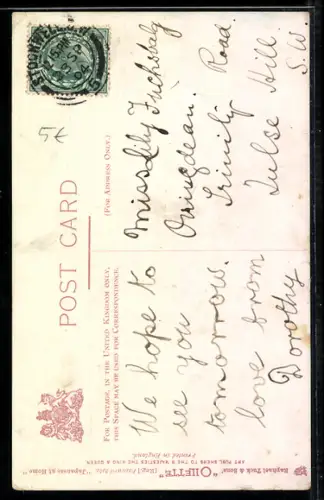 POST CARD
FOR POSTAGE, IN THE UNITED KINGDOM ONLY,
THIS SPACE MAY BE USED FOR CORRESPONDENCE.
(FOR ADDRESS ONLY.)
5£
We hope to
see you
tomorrow.
love from
Dorothy
Miss Lily Fuchsbalg
Ovingdean.
Trinity Road.
Tulse Hill.
S.W.
Raphael Tuck & Sons' "OILETTE" [Regd.] Postcard "Japanese at Home"
ART PUBLISHERS TO THEIR MAJESTIES THE KING & QUEEN
Printed in England.